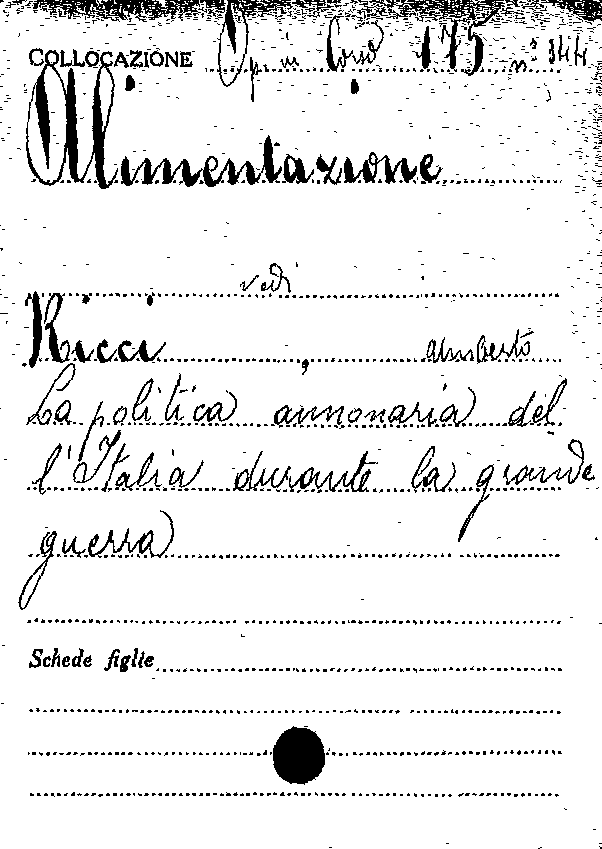 COLLOCAZIONE Op. in Corso 175 n° 344
Alimentazione
vedi
Ricci, Umberto
La politica annonaria del
l'Italia durante la grande
guerra
Schede figlie